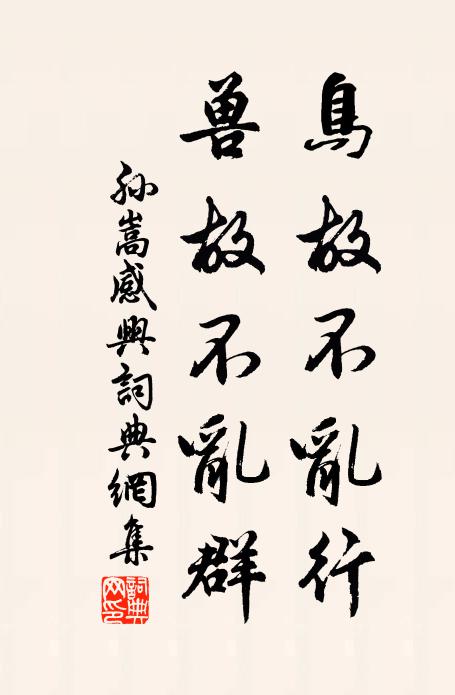 鳥故不亂行
兽故不亂群
孙嵩感興詞典網集
詞典
网印